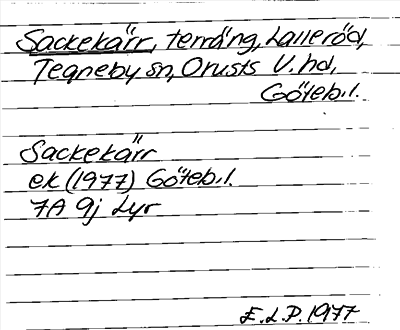 Sackekärr, terräng, Lalleröd,
Tegneby sn, Orusts V. hd,
Göteb.l.
Sackekärr
ek (1977) Göteb.l.
7A 9j Lyr
E.L.P. 1977